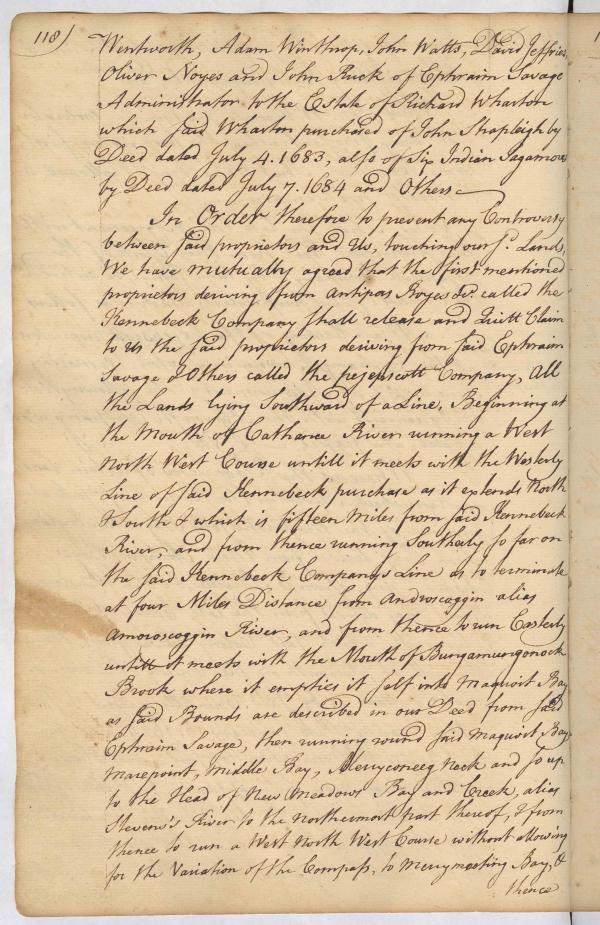 118)
Wentworth, Adam Winthrop, John Watts, David Jeffries
Oliver Noyes and John Ruck of Ephraim Savage
Administrator to the Estate of Richard Wharton
which said Wharton purchased of John Shapleigh by
Deed dated July 4. 1683, also of Six Indian Sagamores
by Deed dated July 7. 1684 and Others
In Order therefore to prevent any Controversy
between said proprietors and Us, touching our sd. Lands,
We have mutually agreed that the first mentioned
proprietors deriving from Antipas Boyes &c. called the
Kennebeck Company shall release and Quitt Claim
to Us the said proprietors deriving from said Ephraim
Savage & Others called the pejepscott Company, All
the Lands lying Southward of a Line, Beginning at
the Mouth of Cathance River running a West
North West Course untill it meets with the Westerly
Line of said Kennebeck purchase as it extends North
& South & which is fifteen Miles from said Kennebeck
River, and from thence running Southerly so far on
the said Kennebeck Companys Line as to terminate
at four Miles Distance from Androscoggin alias
Amoroscoggin River, and from thence to run Easterly
untill it meets with the Mouth of Bungamungonock
Brook where it empties it self into Maquoit Bay
as said Bounds are described in our Deed from said
Ephraim Savage, then running round said Maquoit Bay
Marepoint, Middle Bay, Merryconeeg Neck and so up
to the Head of New Meadows Bay and Creek, alias
Stevens's River to the Northermost part thereof, & from
thence to run a West North West Course without allowing
for the Variation of the Compass, to Merrymeeting Bay, &
thence